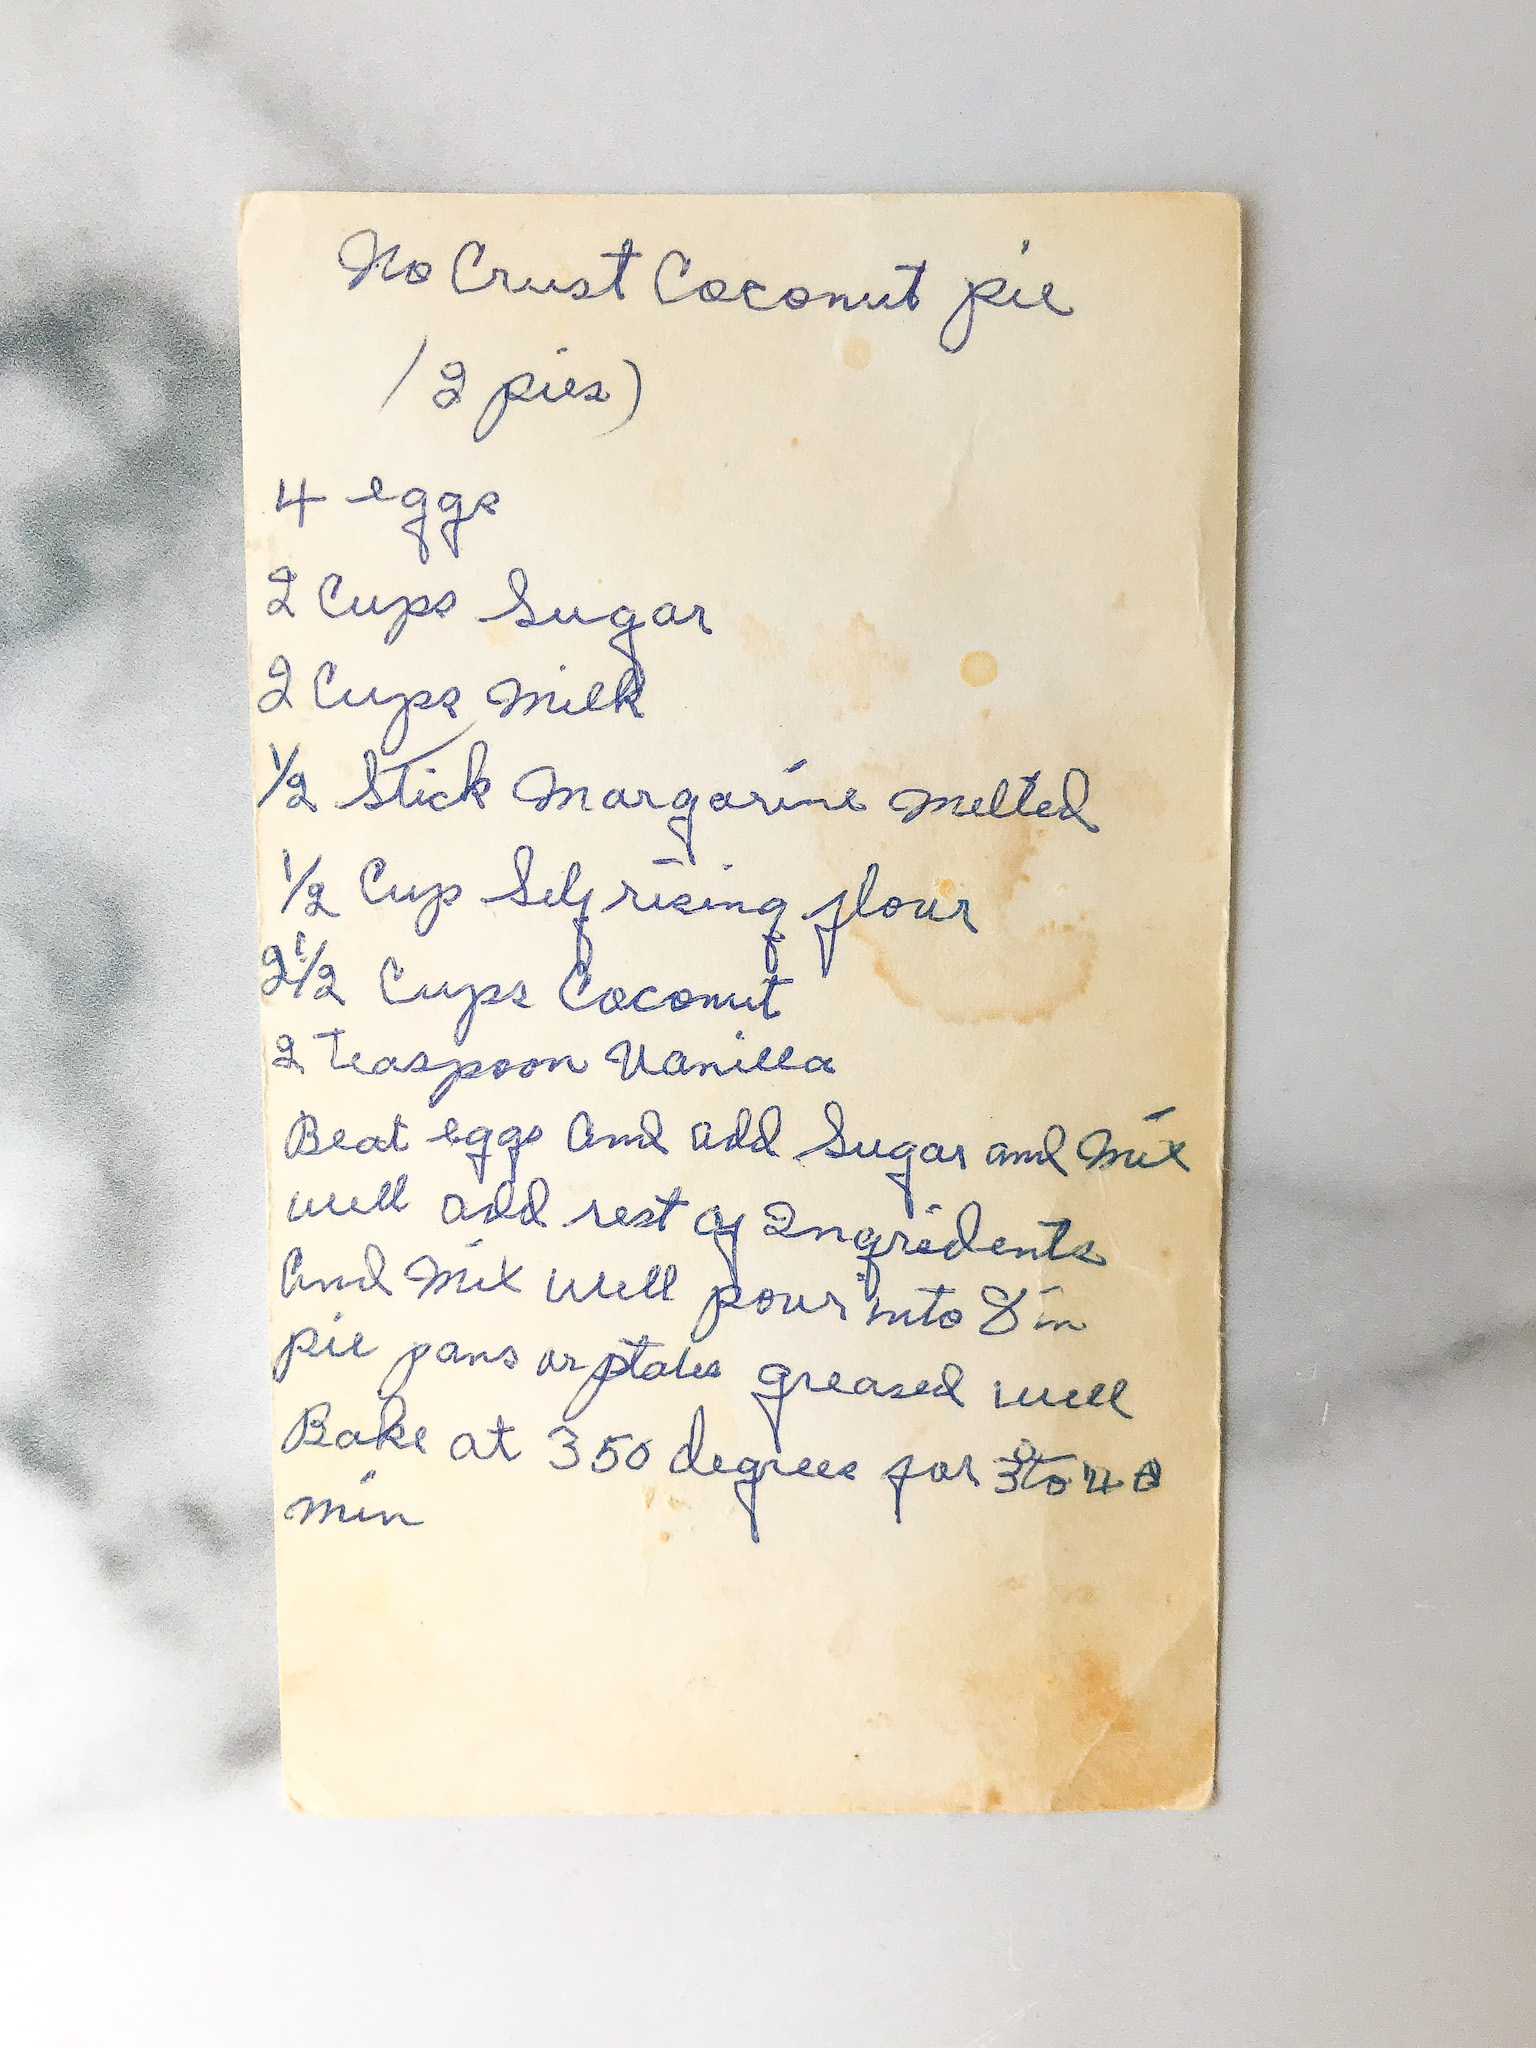 No Crust Coconut pie
(2 pies)
4 eggs
2 Cups Sugar
2 Cups Milk
1/2 Stick Margarine Melted
1/2 Cup Self rising flour
2 1/2 Cups Coconut
2 teaspoon Vanilla
Beat eggs and add Sugar and Mix
well add rest of Ingridents
and Mix well pour into 8 in
pie pans or greased well
Bake at 350 degrees for 30 to 40
min